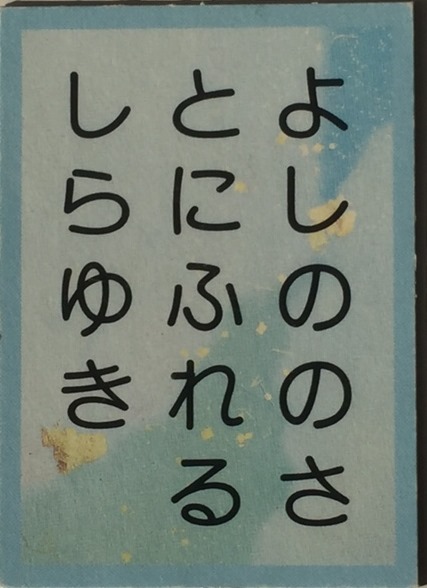 よしののさ
とにふれる
しらゆき